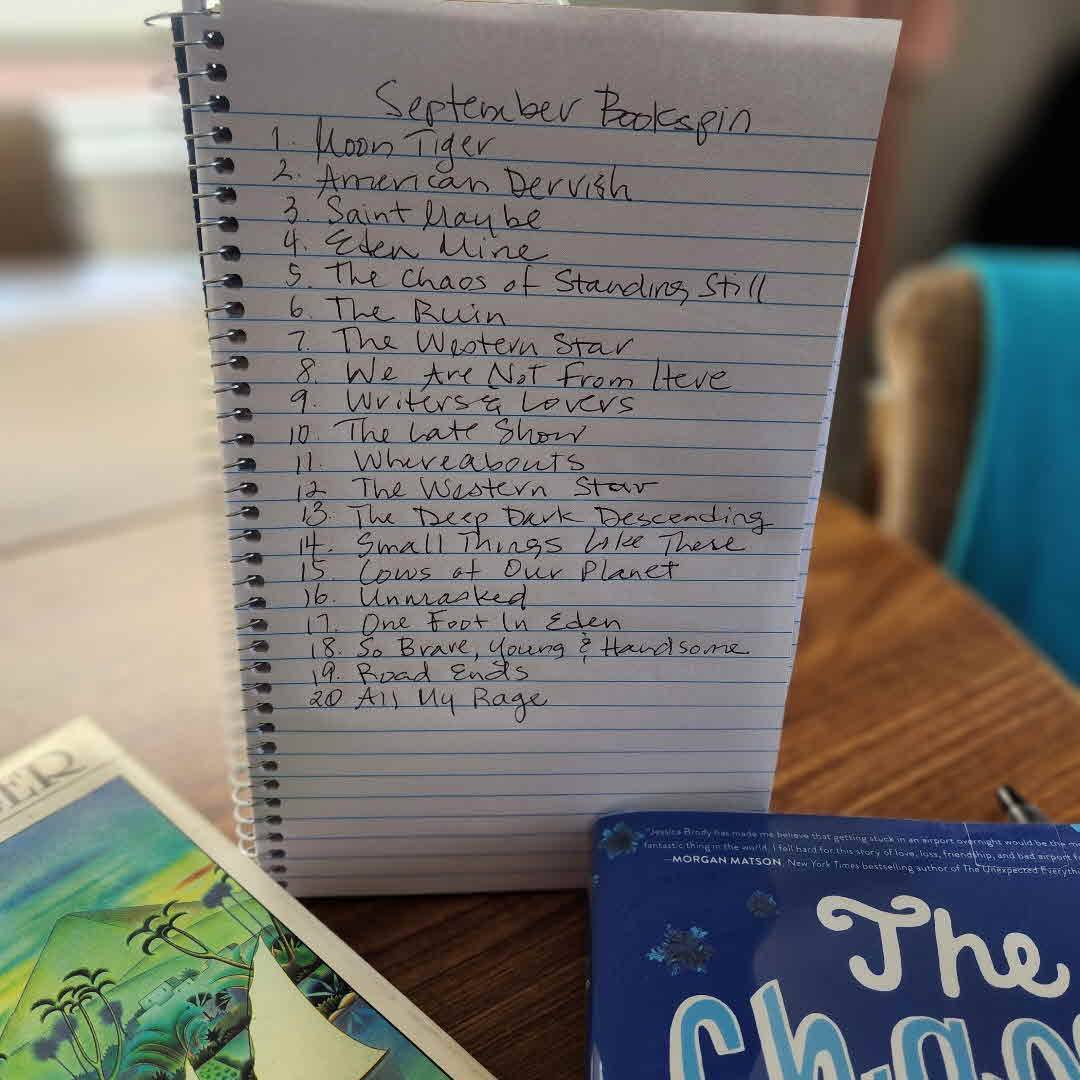 September Bookspin
1. Moon Tiger
2. American Dervish
3. Saint Maybe
4. Eden Mine
5. The Chaos of Standing Still
6. The Ruin
7. The Western Star
8. We Are Not From Here
9. Writers & Lovers
10. The Late Show
11. Whereabouts
12 The Western Star
13. The Deep Dark Descending
14. Small Things Like These
15. Cows of Our Planet
16. Unmasked
17. One Foot In Eden
18. So Brave, Young & Handsome
19. Road Ends
20 All My Rage
DER
"Jessica Brody has made me believe that getting stuck in an airport overnight would be the
fantastic thing in the world. I fell hard for this story of love, loss, friendship, and bad airport
—MORGAN MATSON, New York Times bestselling author of The Unexpected
The
Chao